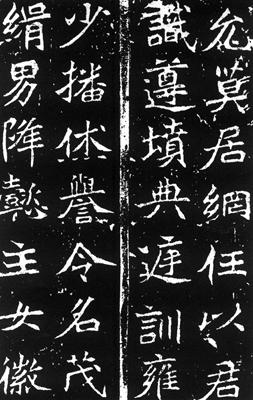 允莫居網任以君
識遵墳典庭訓雍
少播休譽令名茂
緝男降懿主女徽